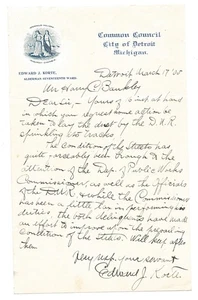 Common Council
City of Detroit
Michigan.
EDWARD J. KORTE,
ALDERMAN SEVENTEENTH WARD.
Detroit March 17 '05
Mr Harry C. Barnby
Dear Sir – Yours of inst at hand
in which you request some action be
taken to lay the dust by the D.U.R
sprinkling the tracks
The condition of the Streets has
quite been brought to the
attention of the Dep. of Public Works
Commissioner as well as the Officials
of the D.U.R while the Commissioner
has been a little lax in performing his
duties, the both delinquents have made
an effort to improve upon the prevailing
condition of the streets. Will keep after
them
Very resp. your servant
Edward J. Korte